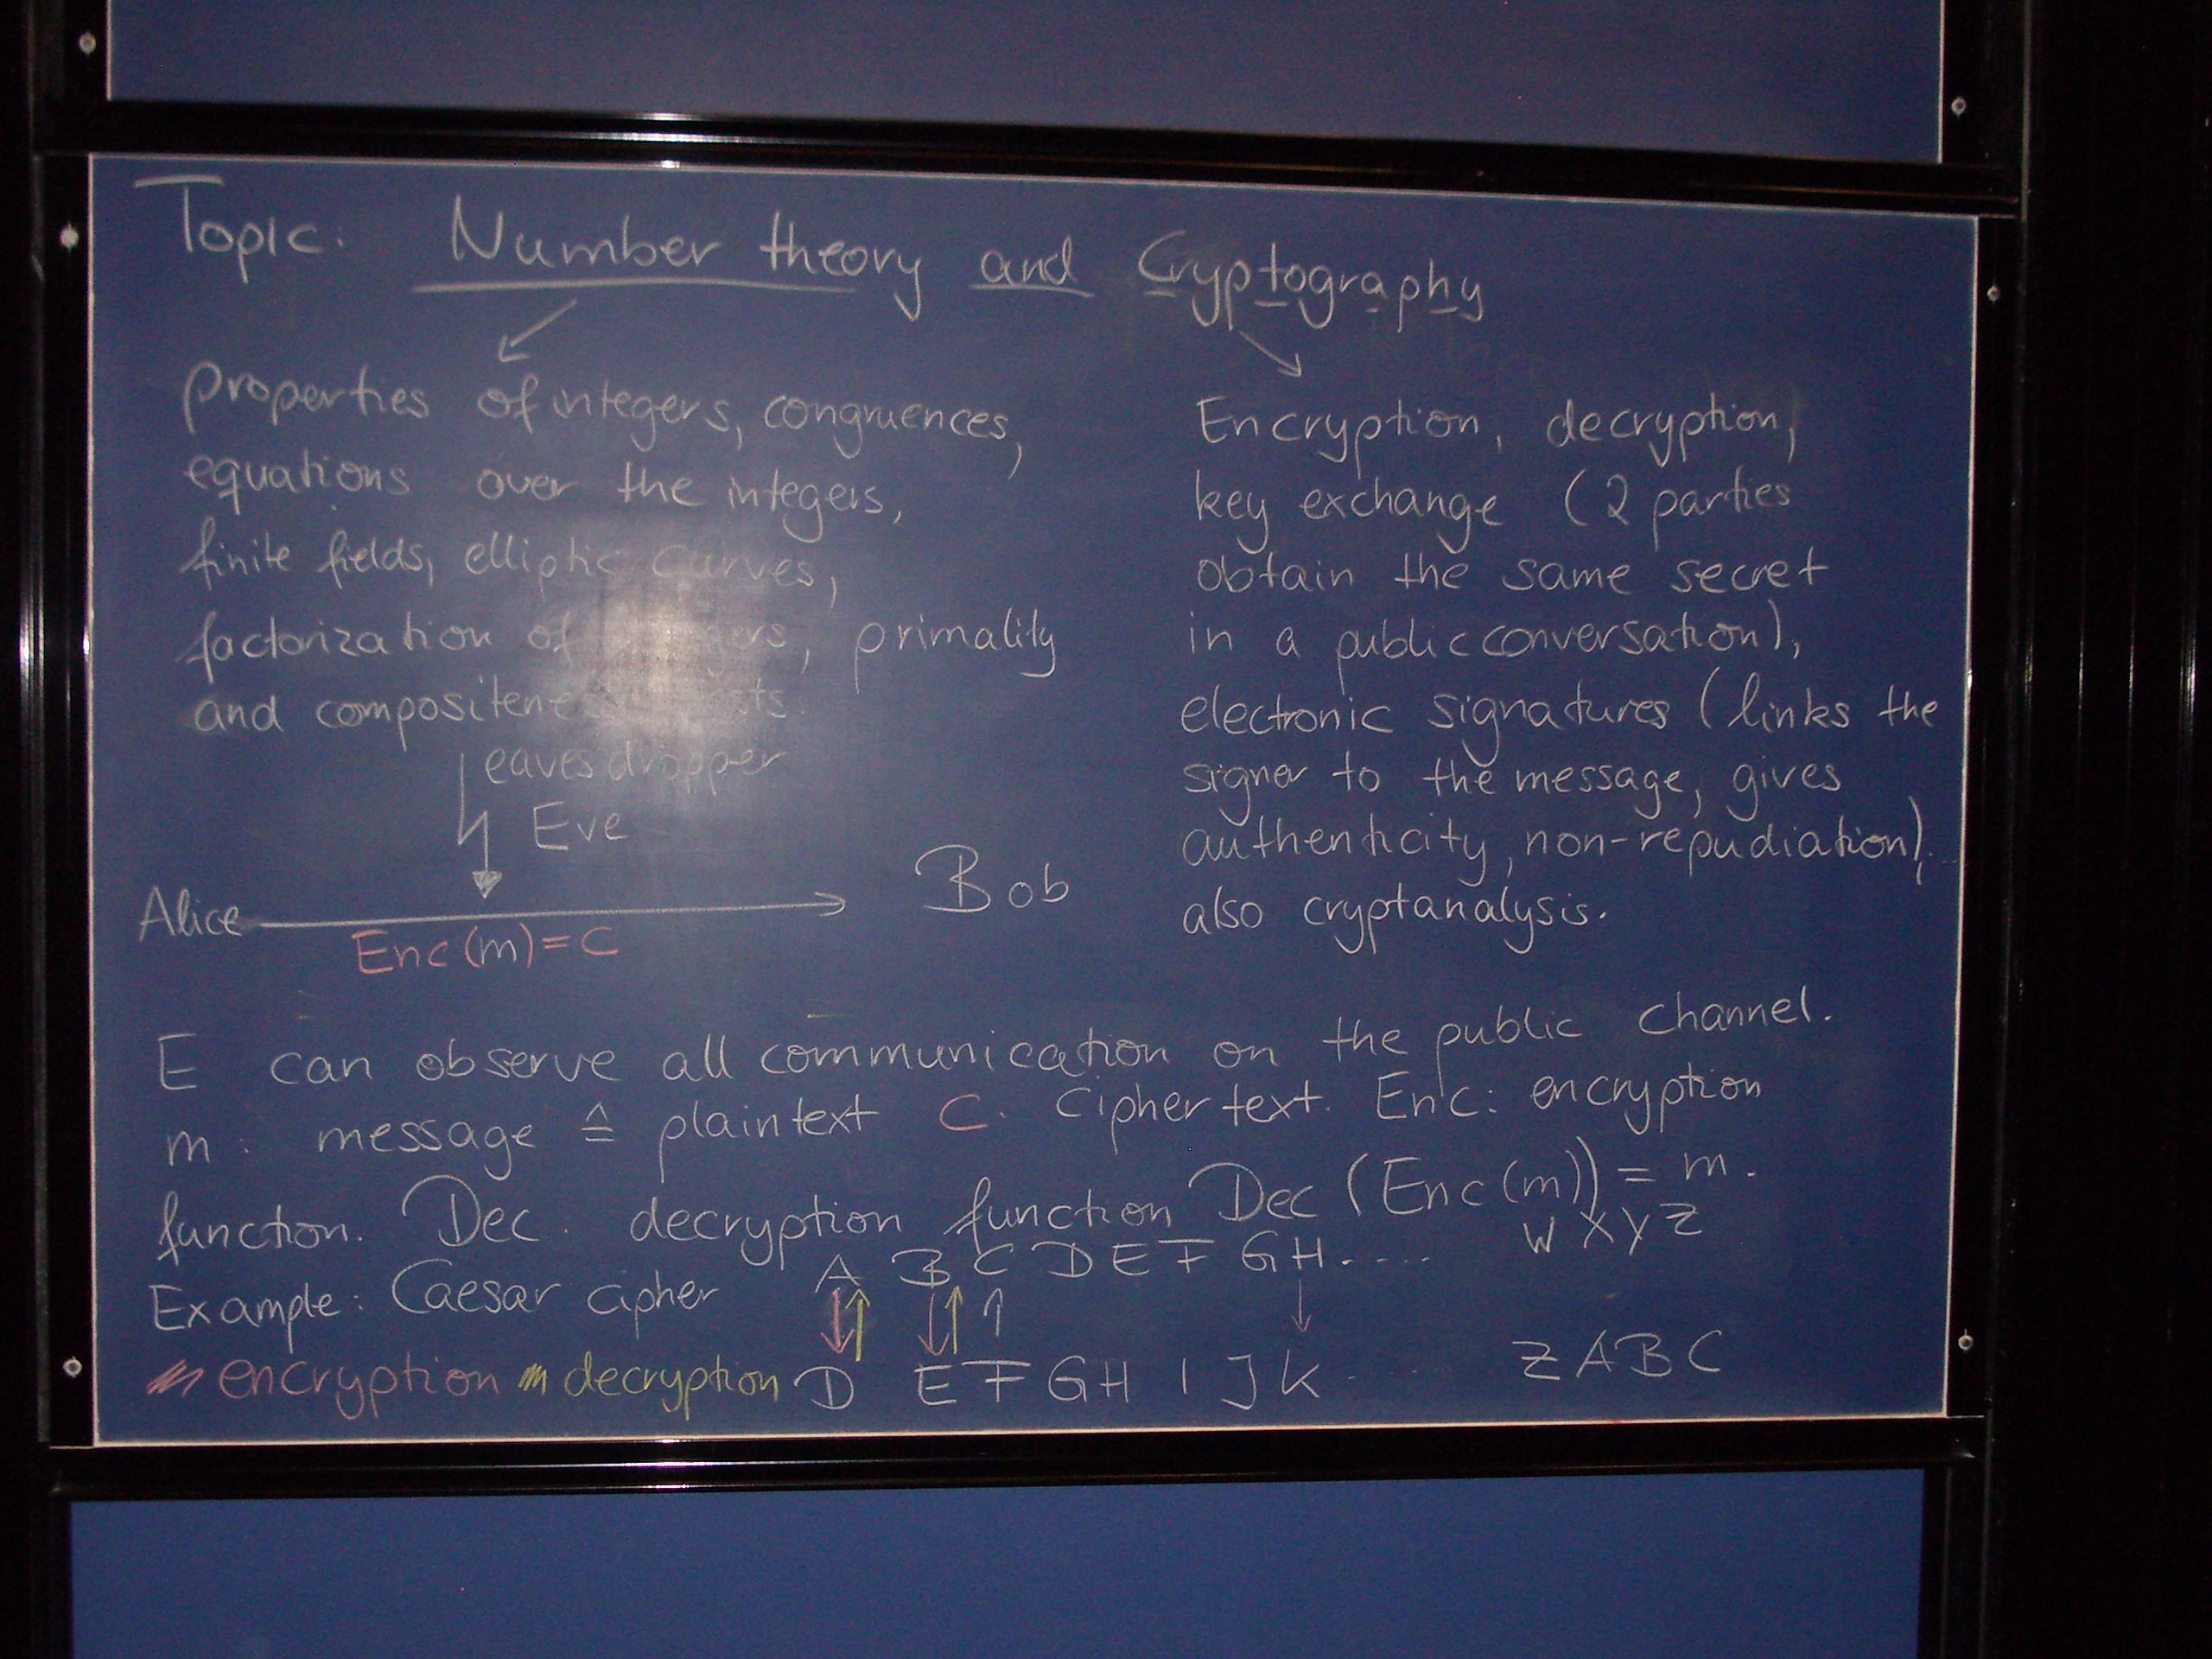 Topic: Number theory and Cryptography
properties of integers, congruences,
equations over the integers,
finite fields, elliptic curves,
factorization of integers, primality
and compositeness tests.
eavesdropper
Eve
Alice
Bob
Enc(m)=C
Encryption, decryption,
key exchange (2 parties
obtain the same secret
in a public conversation),
electronic signatures (links the
signer to the message, gives
authenticity, non-repudiation),
also cryptanalysis.
E can observe all communication on the public channel.
m: message ≙ plaintext C: Ciphertext. Enc: encryption
function. Dec: decryption function Dec(Enc(m)) = m.
Example: Caesar cipher A B C D E F G H..... W X Y Z
encryption decryption D E F G H I J K ..... Z A B C